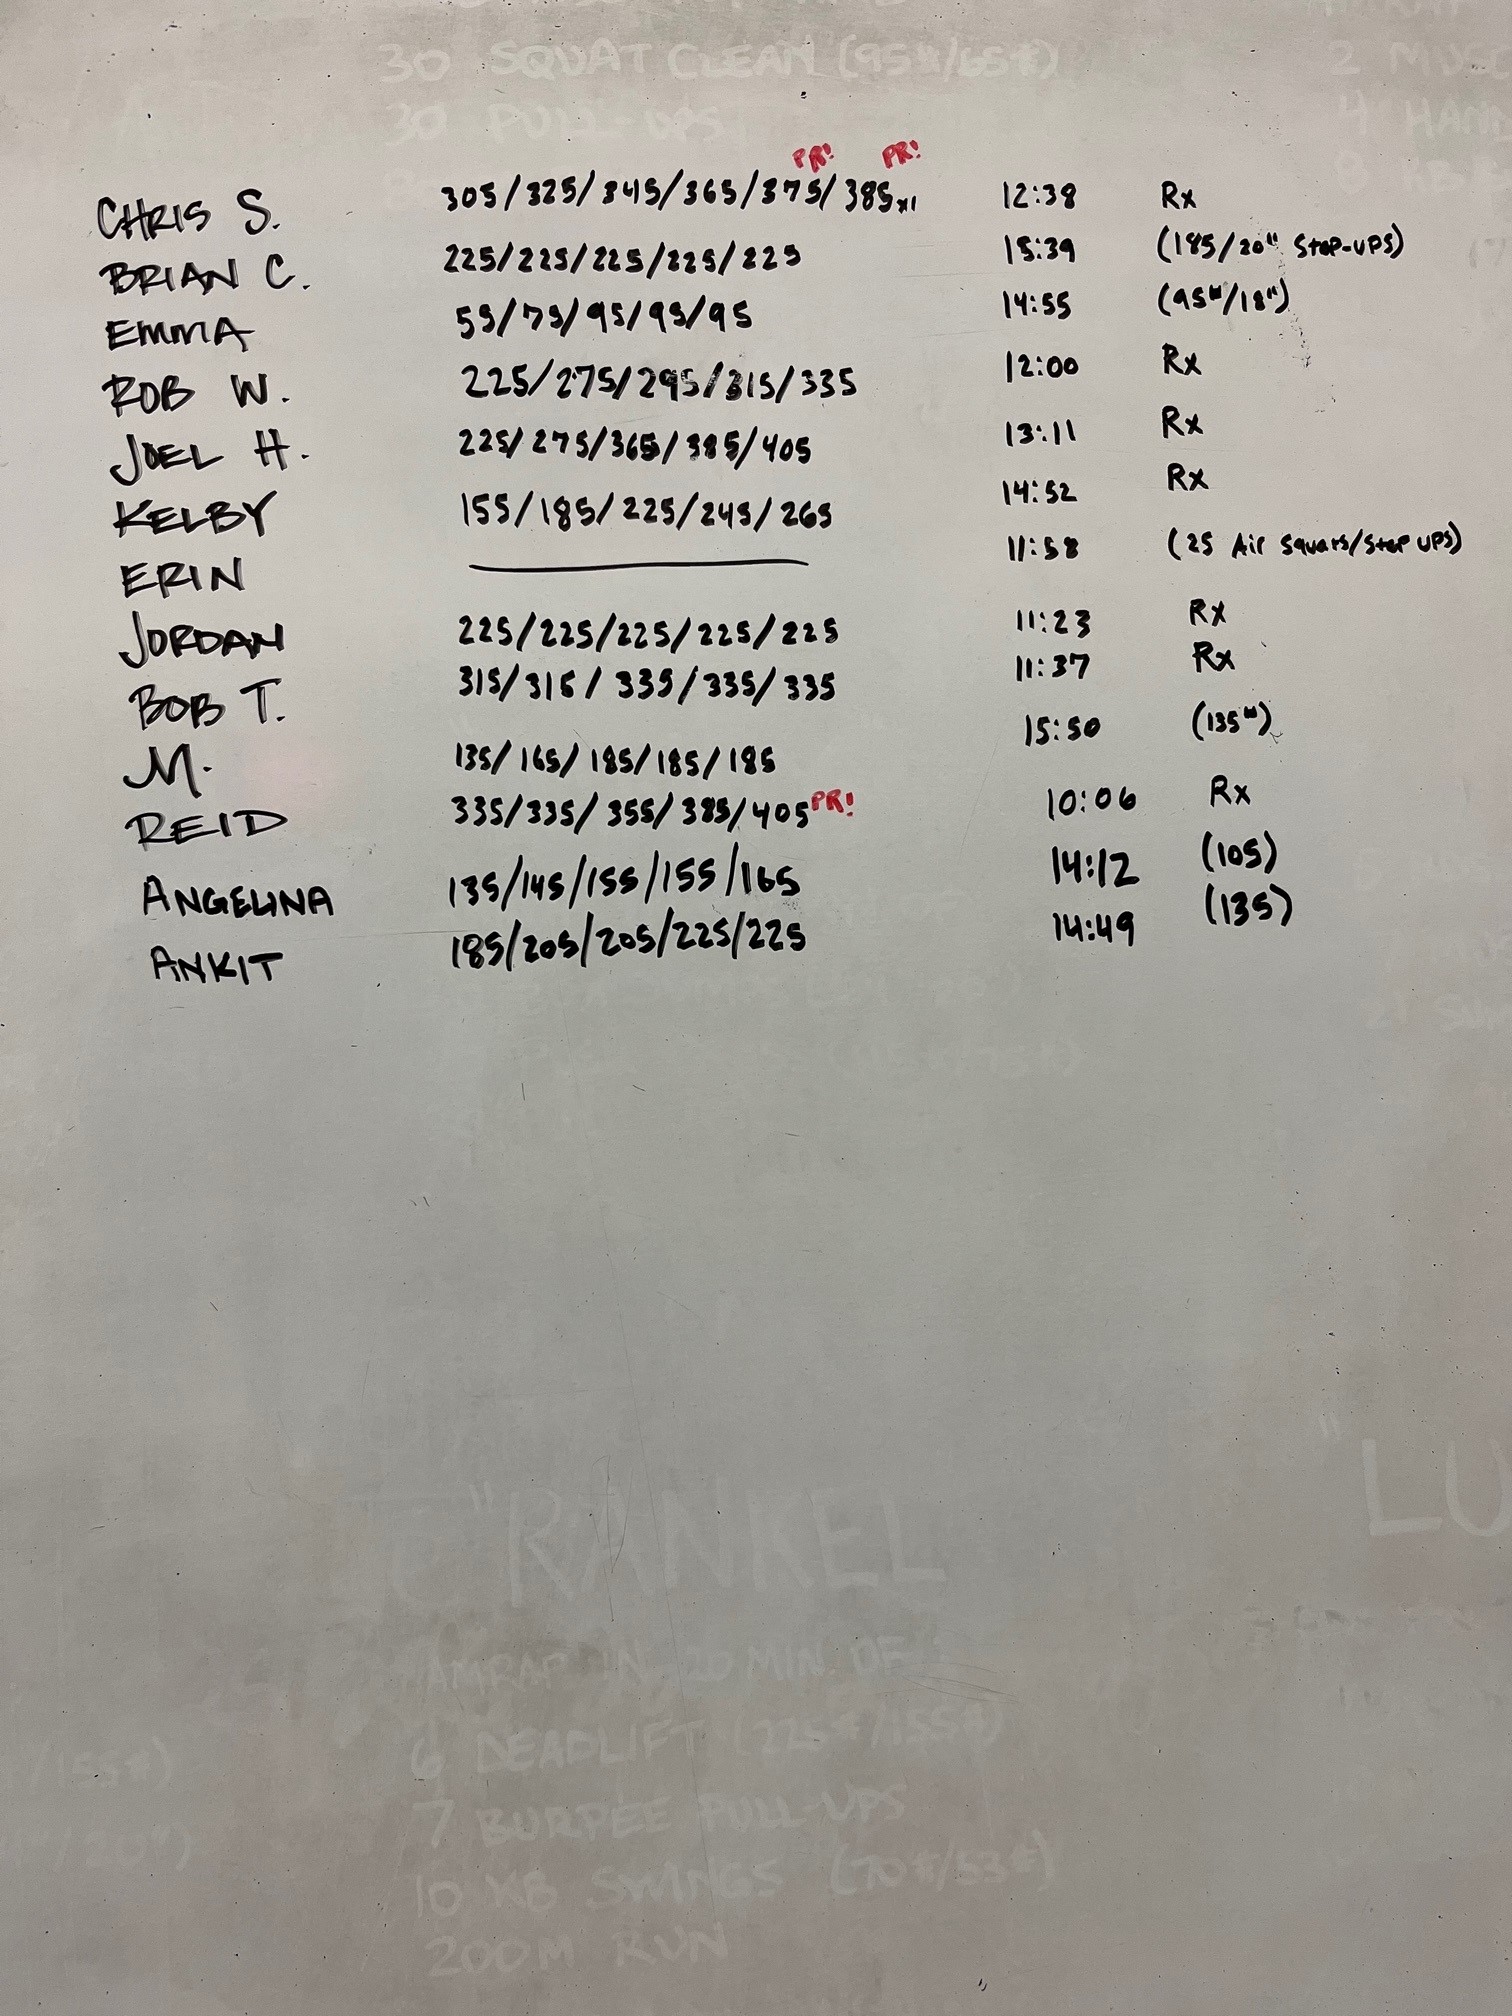 30 SQUAT CLEAN (95#/65#)
2
30 PULL-UPS
4
PR! PR!
CHRIS S. 305/325/345/365/375/385x1 12:38 Rx
BRIAN C. 225/225/225/225/225 15:39 (185/20" Step-ups)
EMMA 55/75/95/95/95 14:55 (95#/18")
ROB W. 225/275/295/315/335 12:00 Rx
JOEL H. 225/275/365/385/405 13:11 Rx
KELBY 155/185/225/245/265 14:52 Rx
ERIN 11:58 (25 Air Squats/Step ups)
JORDAN 225/225/225/225/225 11:23 Rx
BOB T. 315/315/335/335/335 11:37 Rx
M. 135/165/185/185/185 15:50 (135#)
REID 335/335/355/385/405 PR! 10:06 Rx
ANGELINA 135/145/155/155/165 14:12 (105)
ANKIT 185/205/205/225/225 14:49 (135)
21
"RANKEL
"LU
AMRAP IN 20 MIN OF:
6 DEADLIFT (225#/155#)
/155#)
7 BURPEE PULL-UPS
/20")
10 KB SWINGS (70#/53#)
200M RUN